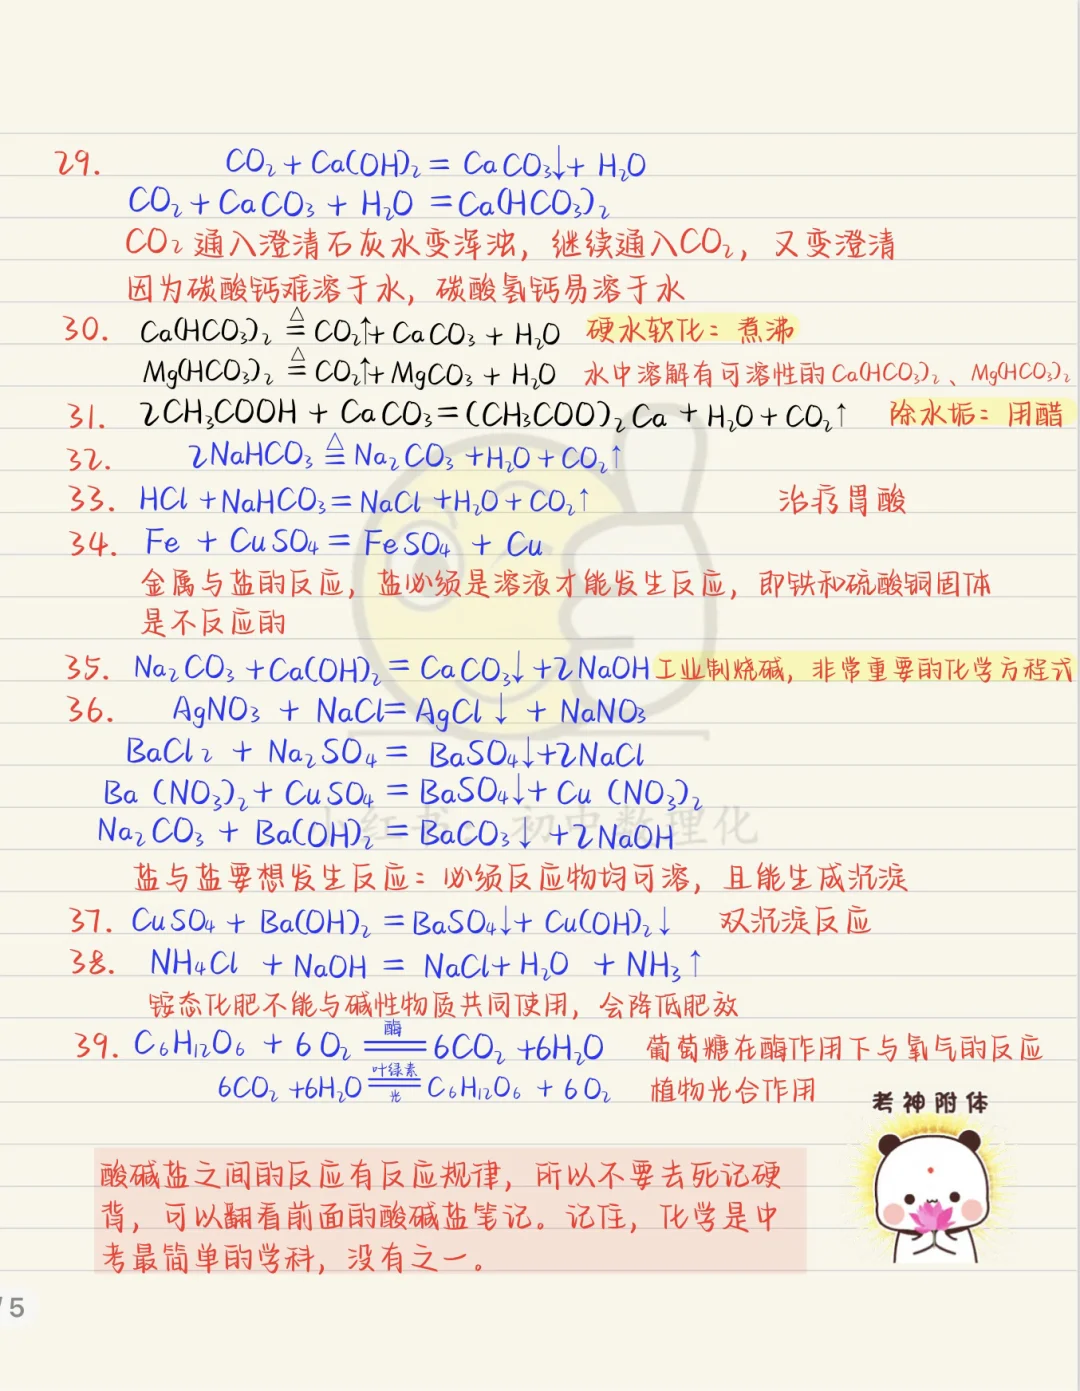 29. CO₂ + Ca(OH)₂ = CaCO₃↓ + H₂O
CO₂ + CaCO₃ + H₂O = Ca(HCO₃)₂
CO₂通入澄清石灰水变浑浊，继续通入CO₂，又变澄清
因为碳酸钙难溶于水，碳酸氢钙易溶于水
30. Ca(HCO₃)₂ ≜ CO₂↑ + CaCO₃ + H₂O 硬水软化：煮沸
Mg(HCO₃)₂ ≜ CO₂↑ + MgCO₃ + H₂O 水中溶解有可溶性的Ca(HCO₃)₂、Mg(HCO₃)₂
31. 2CH₃COOH + CaCO₃ = (CH₃COO)₂Ca + H₂O + CO₂↑ 除水垢：用醋
32. 2NaHCO₃ ≜ Na₂CO₃ + H₂O + CO₂↑
33. HCl + NaHCO₃ = NaCl + H₂O + CO₂↑ 治疗胃酸
34. Fe + CuSO₄ = FeSO₄ + Cu
金属与盐的反应，盐必须是溶液才能发生反应，即铁和硫酸铜固体
是不反应的
35. Na₂CO₃ + Ca(OH)₂ = CaCO₃↓ + 2NaOH 工业制烧碱，非常重要的化学方程式
36. AgNO₃ + NaCl = AgCl↓ + NaNO₃
BaCl₂ + Na₂SO₄ = BaSO₄↓ + 2NaCl
Ba(NO₃)₂ + CuSO₄ = BaSO₄↓ + Cu(NO₃)₂
小红书：初中数理化
Na₂CO₃ + Ba(OH)₂ = BaCO₃↓ + 2NaOH
盐与盐要想发生反应：必须反应物均可溶，且能生成沉淀
37. CuSO₄ + Ba(OH)₂ = BaSO₄↓ + Cu(OH)₂↓ 双沉淀反应
38. NH₄Cl + NaOH = NaCl + H₂O + NH₃↑
铵态化肥不能与碱性物质共同使用，会降低肥效
酶
39. C₆H₁₂O₆ + 6O₂ = 6CO₂ + 6H₂O 葡萄糖在酶作用下与氧气的反应
叶绿素
6CO₂ + 6H₂O = C₆H₁₂O₆ + 6O₂ 植物光合作用
光
考神附体
酸碱盐之间的反应有反应规律，所以不要去死记硬
背，可以翻看前面的酸碱盐笔记。记住，化学是中
考最简单的学科，没有之一。
/5